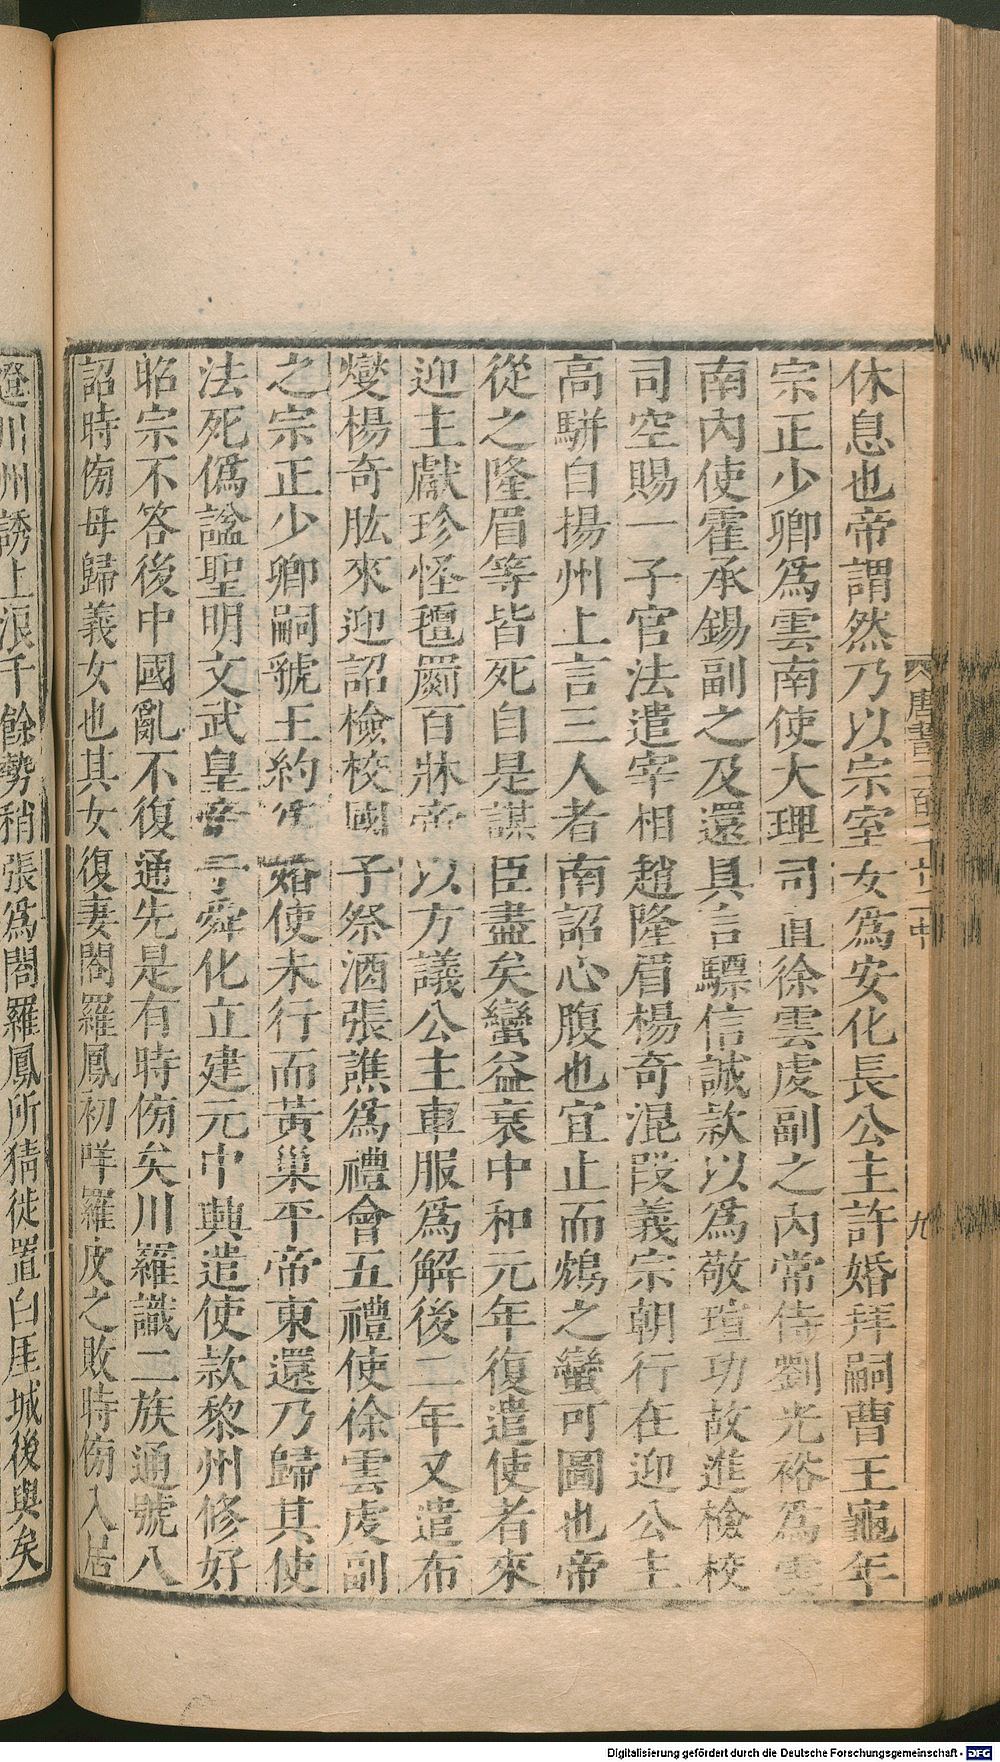 休息也帝謂然乃以宗室女爲安化長公主許婚拜嗣曹王龜年
宗正少卿爲雲南使大理司直徐雲虔副之內常侍劉光裕爲雲
南內使霍承錫副之及還具言驃信誠款以爲敬瑄功故進檢校
司空賜一子官法遣宰相趙隆眉楊奇混段義宗朝行在迎公主
高駢自揚州上言三人者南詔心腹也宜止而鴆之蠻可圖也帝
從之隆眉等皆死自是謀臣盡矣蠻益衰中和元年復遣使者來
迎主獻珍怪氊罽百牀帝以方議公主車服爲解後二年又遣布
燮楊奇肱來迎詔檢校國子祭酒張譙爲禮會五禮使徐雲虔副
之宗正少卿嗣虢王約爲婚使未行而黃巢平帝東還乃歸其使
法死僞諡聖明文武皇帝子舜化立建元中興遣使款黎州修好
昭宗不答後中國亂不復通先是有時傍矣川羅識二族通號八
詔時傍母歸義女也其女復妻閤羅鳳初咩羅皮之敗時傍入居
邆川州誘上浪千餘勢稍張爲閤羅鳳所猜徙置白厓城後與矣
唐書二百二十二中
九
Digitalisierung gefördert durch die Deutsche Forschungsgemeinschaft - DFG